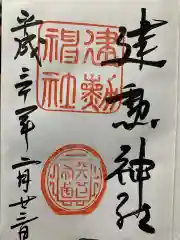 建勲神社
建勲
神社
平成三十一年二月廿三日